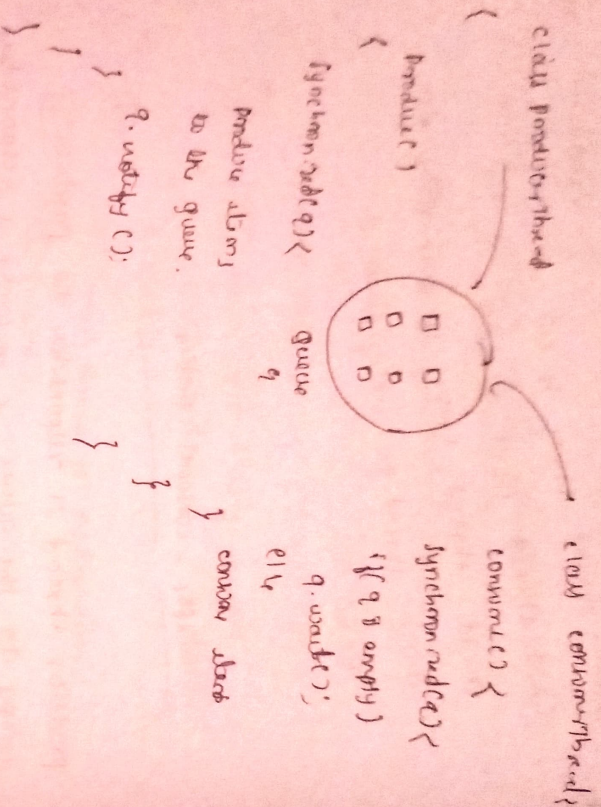 class producerthread
{
produce()
{
synchronized(q){
produce items
to the queue.
q.notify();
}
}
}
queue
q
class consumerthread{
consume() {
synchronized(q){
if(q is empty)
q.wait();
else
consume items
}
}
}